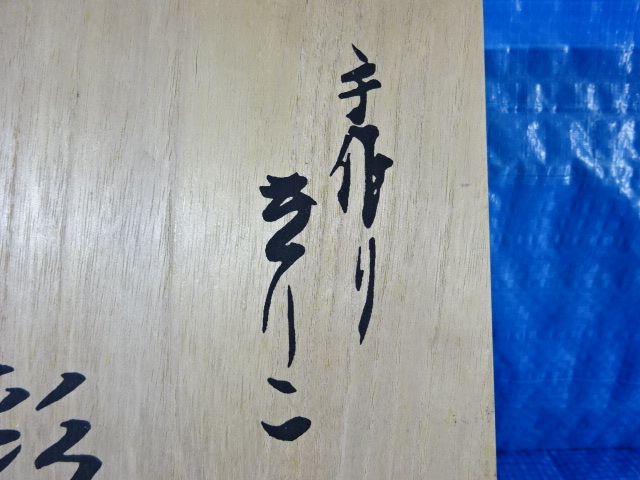 手作り
きりこ